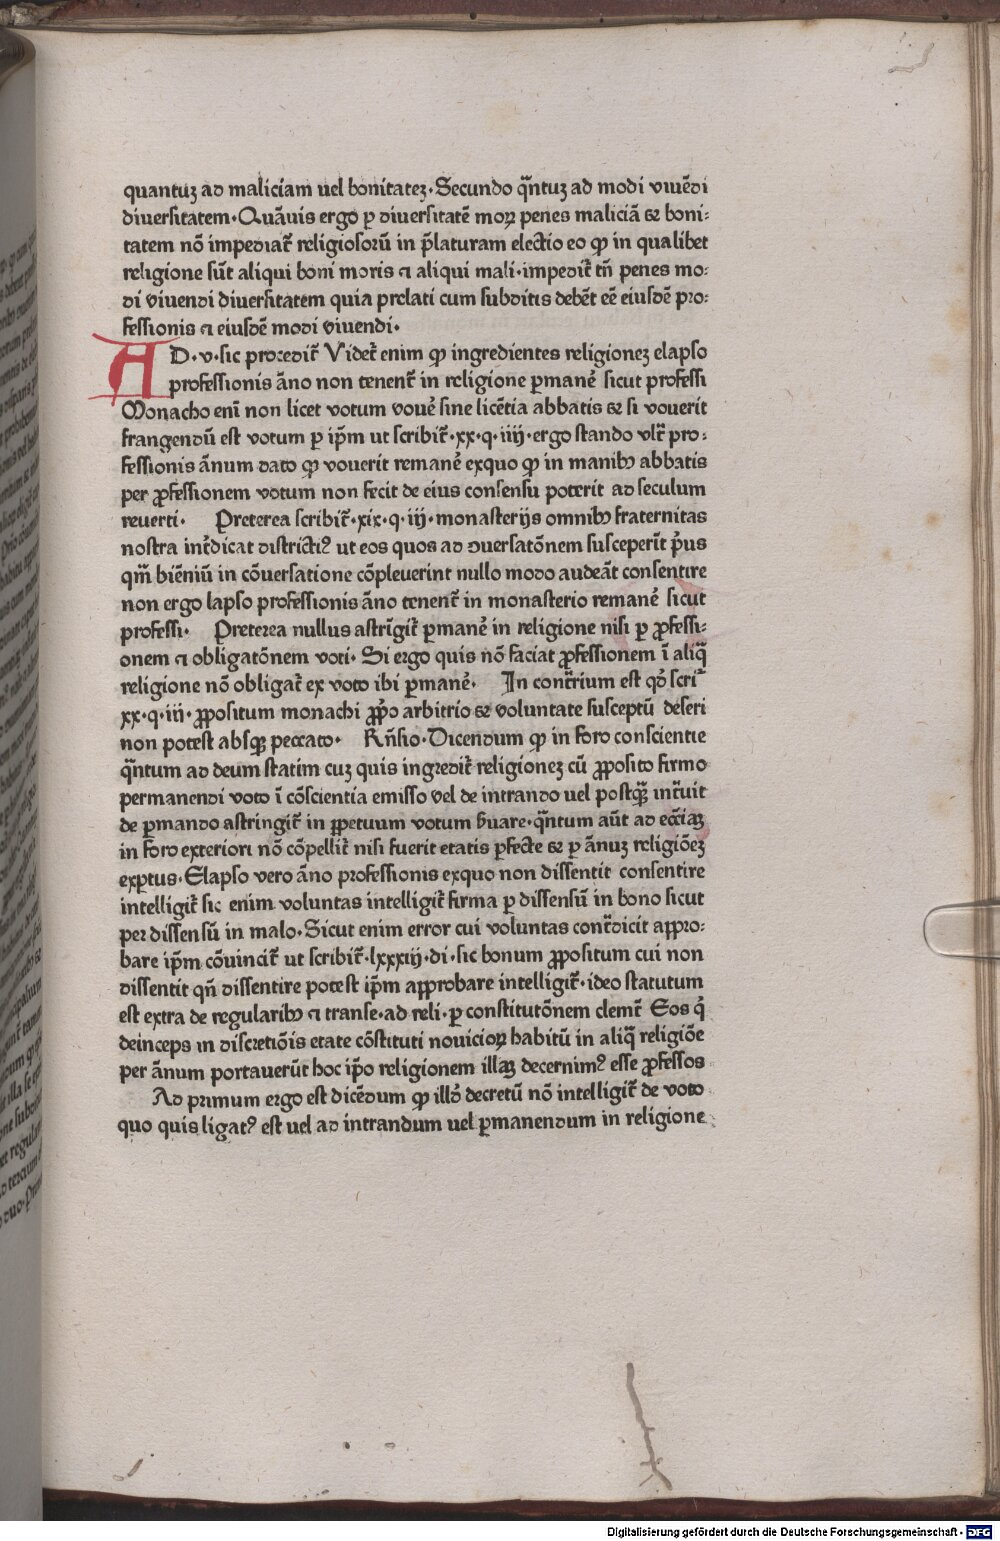 quantuꝫ ad maliciam uel bonitateꝫ. Secundo q̄ntuꝫ ad modi viuēdi
diuersitatem. Quāuis ergo ꝑ diuersitatē moꝝ penes maliciā ⁊ boni:
tatem nō impediat᷑ religiosorū in p̄laturam electio eo ꝙ in qualibet
religione sūt aliqui boni moris ⁊ aliqui mali. impedit᷑ tn̄ penes mo:
di viuendi diuersitatem quia prelati cum subditis debēt eē eiusdē pro:
fessionis ⁊ eiusdē modi viuendi.
AD. v. sic procedit᷑ Videt᷑ enim ꝙ ingredientes religioneꝫ elapso
professionis āno non tenent᷑ in religione ꝑmanē sicut professi
Monacho eni non licet votum vouē sine licētia abbatis ⁊ si vouerit
frangendū est votum ꝑ ip̄m ut scribit᷑. xx. q. iiij. ergo stando vlt᷑ pro:
fessionis ānum dato ꝙ vouerit remanē exquo ꝙ in manibꝰ abbatis
per ꝓfessionem votum non fecit de eius consensu poterit ad seculum
reuerti. Preterea scribit᷑. xix. q. iij. monasterijs omnibꝰ fraternitas
nostra int᷑dicat districtiꝰ ut eos quos ad ↄuersatōnem susceperīt p̄us
qm̄ biēniū in cōuersatione cōpleuerint nullo modo audeāt consentire
non ergo lapso professionis āno tenent᷑ in monasterio remanē sicut
professi. Preterea nullus astrīgit᷑ ꝑmanē in religione nisi ꝑ ꝓfessi:
onem ⁊ obligatōnem voti. Si ergo quis nō faciat ꝓfessionem ī aliq̄
religione nō obligat᷑ ex voto ibi ꝑmanē. In cont᷑rium est qd̓ scri᷑
xx. q. iij. ꝓpositum monachi ꝓp̓o arbitrio ⁊ voluntate susceptū deseri
non potest absqꝫ peccato. Rn̄sio. Dicendum ꝙ in foro conscientie
q̄ntum ad deum statim cuꝫ quis ingredit᷑ religioneꝫ cū ꝓposito firmo
permanendi voto ī cōscientia emisso vel de intrando uel postqꝫ̄ int᷑uit
de ꝑmando astringit᷑ in ꝑpetuum votum ẜuare. q̄ntum aūt ad ecc̄iaꝫ
in foro exteriori nō cōpellit᷑ nisi fuerit etatis ꝑfecte ⁊ ꝑ ānuꝫ religiōeꝫ
exꝑtus. Elapso vero āno professionis exquo non dissentit consentire
intelligit᷑ sic enim voluntas intelligit᷑ firma ꝑ dissensū in bono sicut
per dissensū in malo. Sicut enim error cui voluntas cont᷑dicit appro:
bare ip̄m cōuincit᷑ ut scribit᷑. lxxxiij. di. sic bonum ꝓpositum cui non
dissentit qn̄ dissentire potest ip̄m approbare intelligit᷑. ideo statutum
est extra de regularibꝰ ⁊ transe. ad reli. ꝑ constitutōnem clemt᷑ Eos q̓
deinceps in discretiōis etate cōstituti nouicioꝝ habitū in aliq̄ religiōe
per ānum portauerūt hoc ip̄o religionem illaꝫ decernimꝰ esse ꝓfessos
Ad primum ergo est dicēdum ꝙ illd̓ decretū nō intelligit᷑ de voto
quo quis ligatꝰ est uel ad intrandum uel ꝑmanendum in religione
Digitalisierung gefördert durch die Deutsche Forschungsgemeinschaft - DFG